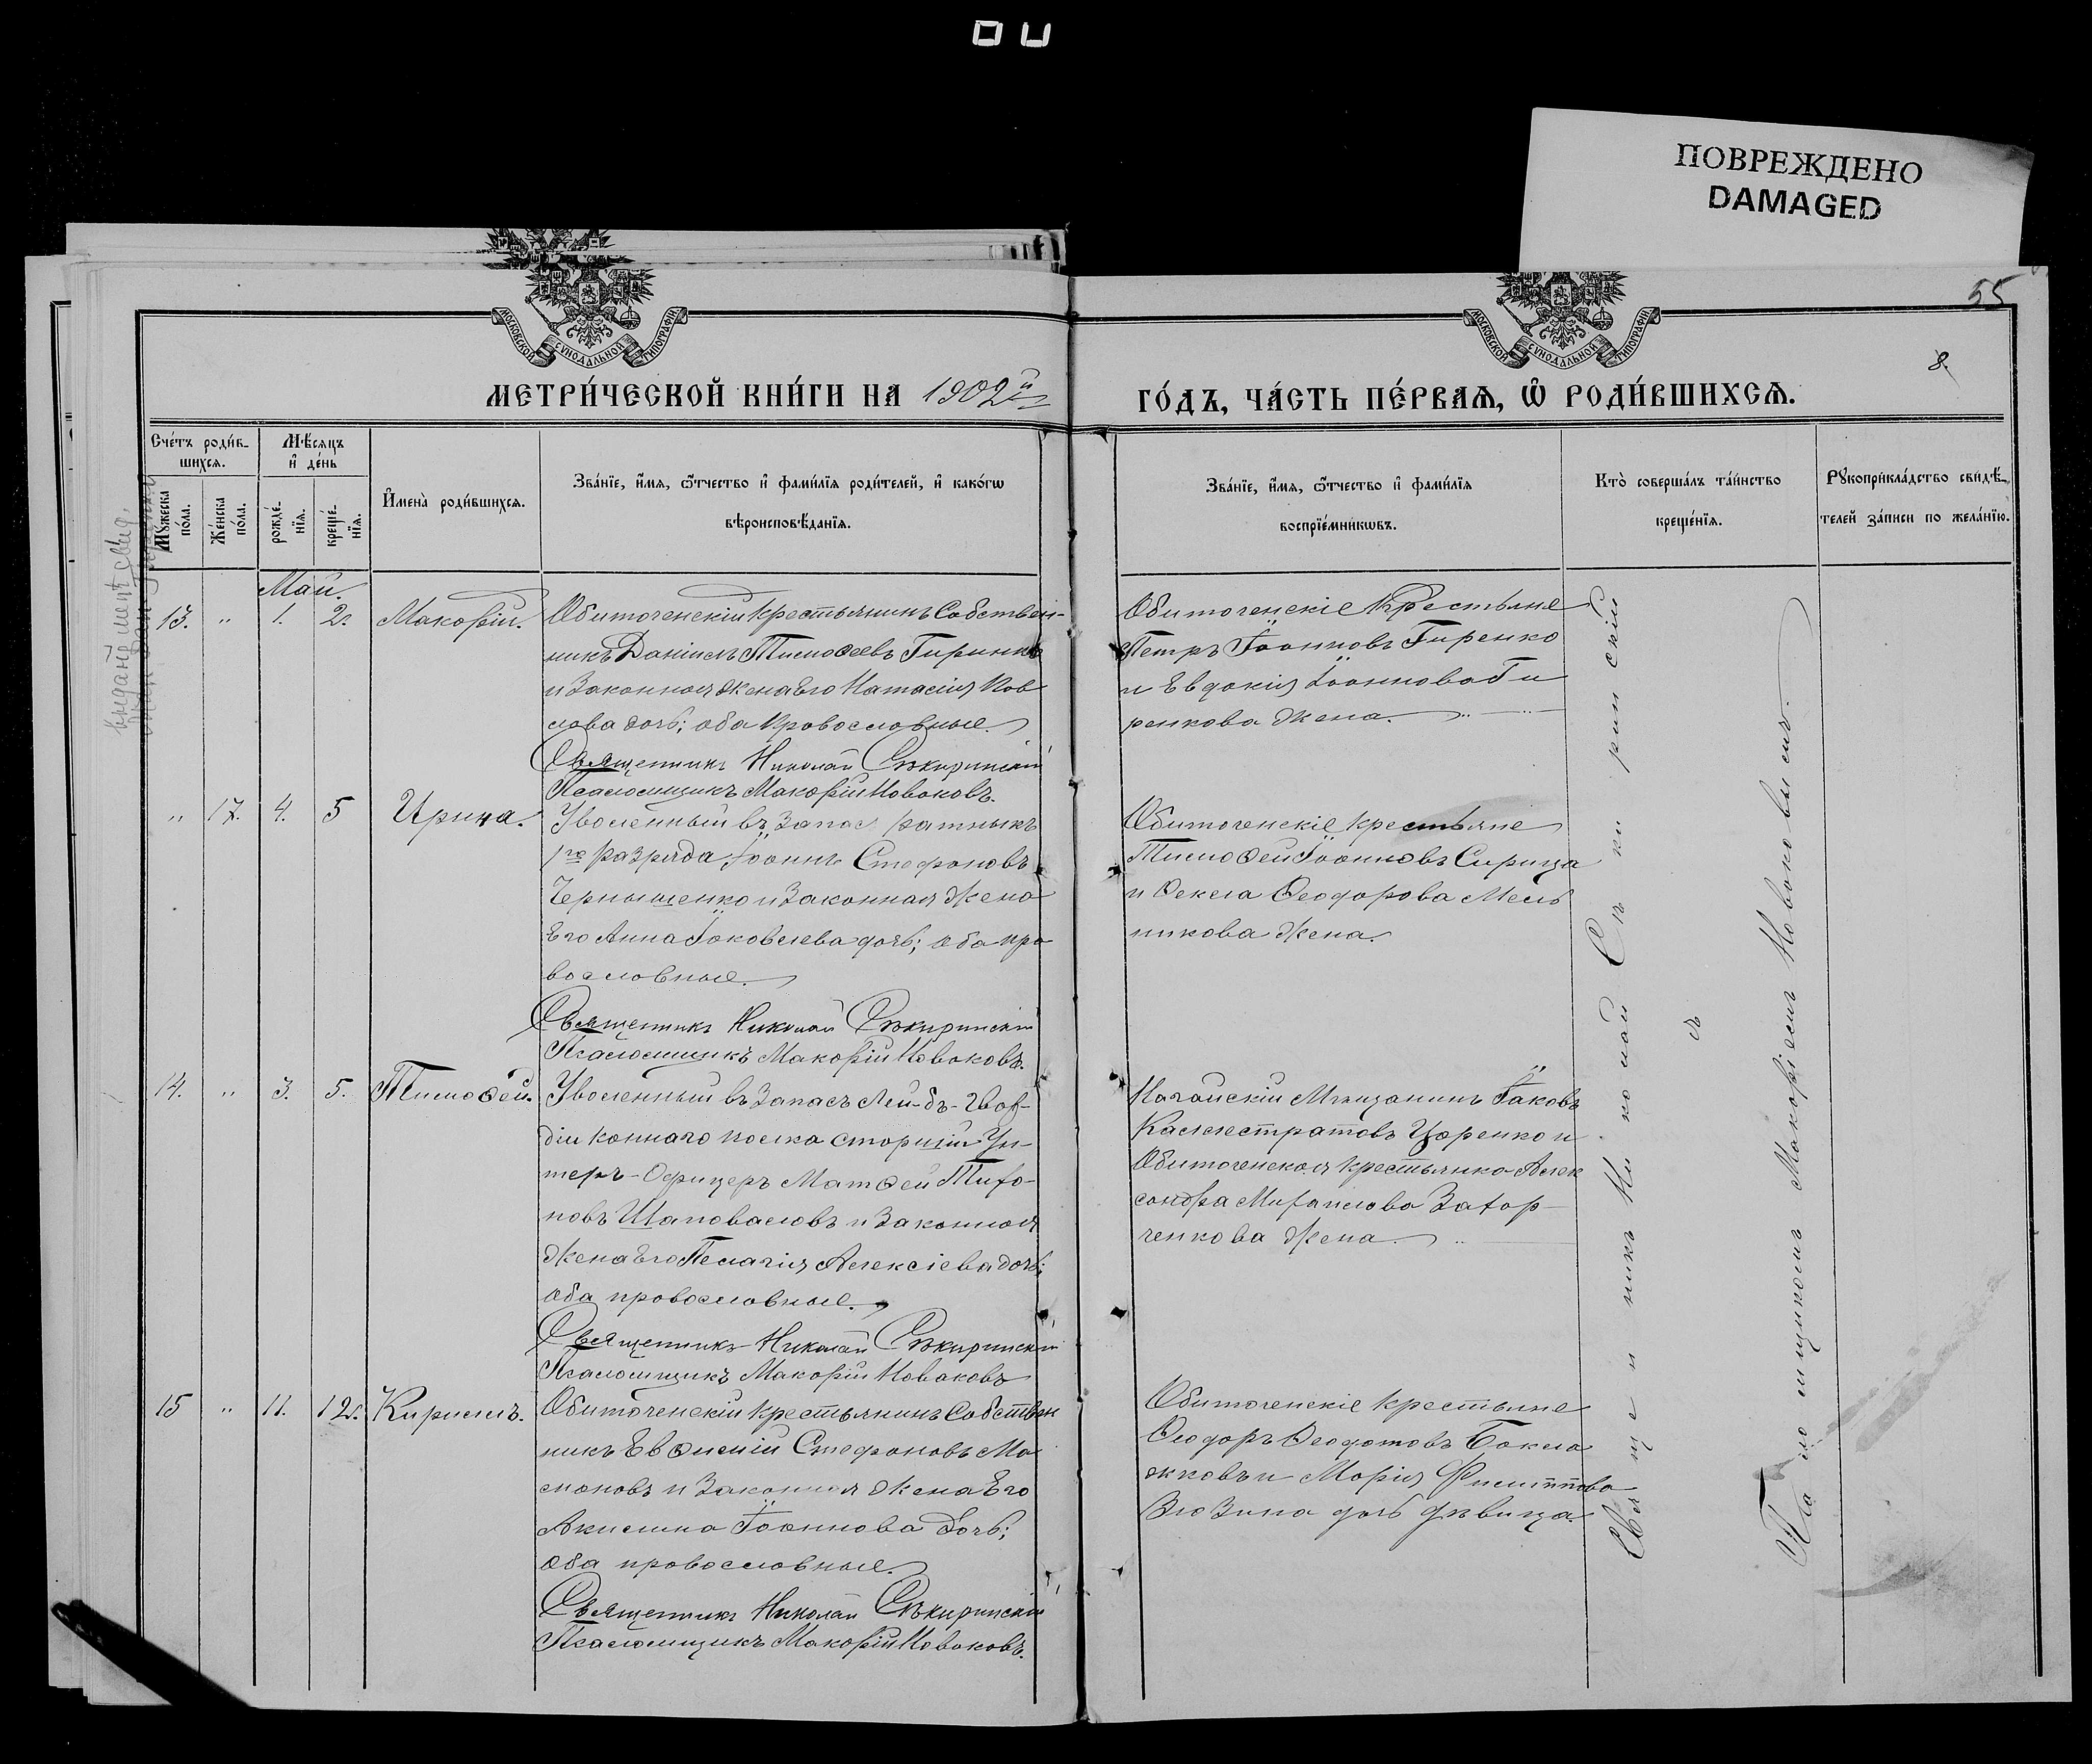 ПОВРЕЖДЕНО
DAMAGED
55
8.
МОСКОВСКОЙ СѴНОДАЛЬНОЙ ТИПОГРАФІИ
МОСКОВСКОЙ СѴНОДАЛЬНОЙ ТИПОГРАФІИ
МЕТРИ́ЧЕСКОЙ КНИ́ГИ НА 1902й
ГО́ДЪ, ЧА́СТЬ ПЕ́РВАѦ, Ѡ҆ РОДИ́ВШИХСѦ.
Сче́тъ роди́в-
шихсѧ.
Мѣ́сѧцъ
и҆ де́нь
Мꙋ́жеска
по́ла.
Же́нска
по́ла.
рожде́-
нїѧ.
креще́-
нїѧ.
И҆мена̀ роди́вшихсѧ.
Зва́нїе, и҆́мѧ, ѻ҆́тчество и҆ фами́лїѧ роди́телей, и҆ како́гѡ
вѣроисповѣ́данїѧ.
Зва́нїе, и҆́мѧ, ѻ҆́тчество и҆ фами́лїѧ
воспрїе́мникѡвъ.
Кто̀ соверша́лъ та́инство
креще́нїѧ.
Рꙋкоприкла́дство свидѣ́-
телей за́писи по жела́нїю.
Май.
13. " 1. 2. Макарій.
Обиточенскій крестьянинъ Собствен-
никъ Даніилъ Тимоѳеевъ Гиренко
и Законная жена Его Наталія Пав
лова дочь; оба православные.
Священникъ Николай Сѣкиринскій
Псаломщикъ Макарій Новаковъ.
Обиточенскіе Крестьяне
Петръ Іоанновъ Гиренко
и Евдокія Іоаннова Ги
ренкова жена.
" 17. 4. 5 Ирина.
Уволенный въ Запас ратникъ
1го разряда, Іоаннъ Стефановъ
Чернышенко и Законная жена
Его Анна Іаковлева дочь; оба пра
вославные.
Священникъ Николай Сѣкиринскій
Псаломщикъ Макарій Новаковъ.
Обиточенскіе крестьяне
Тимоѳей Іоанновъ Сирица
и Ѳекла Ѳеодорова Мель
никова жена.
14. " 3. 5. Тимоѳей.
Уволенный въ Запасъ Лей-бъ-Гвар-
діи коннаго полка старшій Ун-
теръ-Офицеръ Матѳей Тихо-
новъ Шаповаловъ и Законная
жена Его Пелагія Алексіева дочь;
оба православные.
Священникъ Николай Сѣкиринскій
Псаломщикъ Макарій Новаковъ
Ногайскій Мѣщанинъ Іаковъ
Каллистратовъ Царенко и
Обиточенская крестьянка Алек
сандра Михаилова Захар-
ченкова жена.
15 " 11. 12. Кириллъ.
Обиточенскій крестьянинъ Собствен
никъ Евѳимій Стефановъ Ма
моновъ и Законная жена Его
Акилина Іоаннова дочь;
оба православные.
Священникъ Николай Сѣкиринскій
Псаломщикъ Макарій Новаковъ.
Обиточенскіе крестьяне
Ѳеодоръ Ѳеодотовъ Бакла
жковъ и Марія Филиппова
дочь дѣвица.
Священникъ Николай Сѣкиринскій
съ
Псаломщикомъ Макаріемъ Новаковымъ.